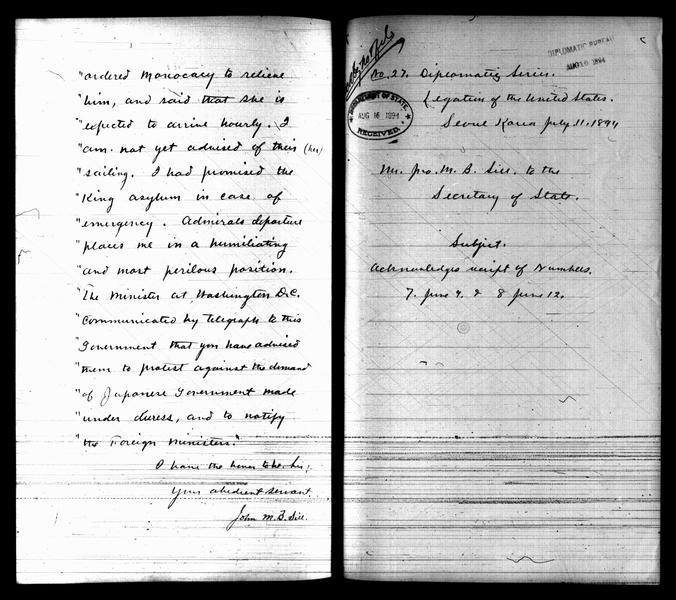 "ordered Monocacy to relieve
"him, and said that she is
"expected to arrive hourly. I
"am not yet advised of their (her)
"sailing. I had promised the
"King asylum in case of
"emergency. Admirals departure
"places me in a humiliating
"and most perilous position.
"The Minister at Washington D.C.
"Communicated by telegraph to this
"Government that you have advised
"them to protest against the demand
"of Japanese Government made
"under duress, and to notify
"the Foreign Ministers."
I have the honor to be, sir,
Your obedient servant.
John M. B. Sill.
DIPLOMATIC BUREAU
AUG 16 1894
No. 27. Diplomatic Series.
Legation of the United States.
Seoul Korea July 11. 1894
DEPARTMENT OF STATE
AUG 16 1894
RECEIVED.
Mr. Jno. M. B. Sill. to the
Secretary of State.
Subject.
Acknowledges receipt of Numbers.
7. June 9. & 8 June 12.